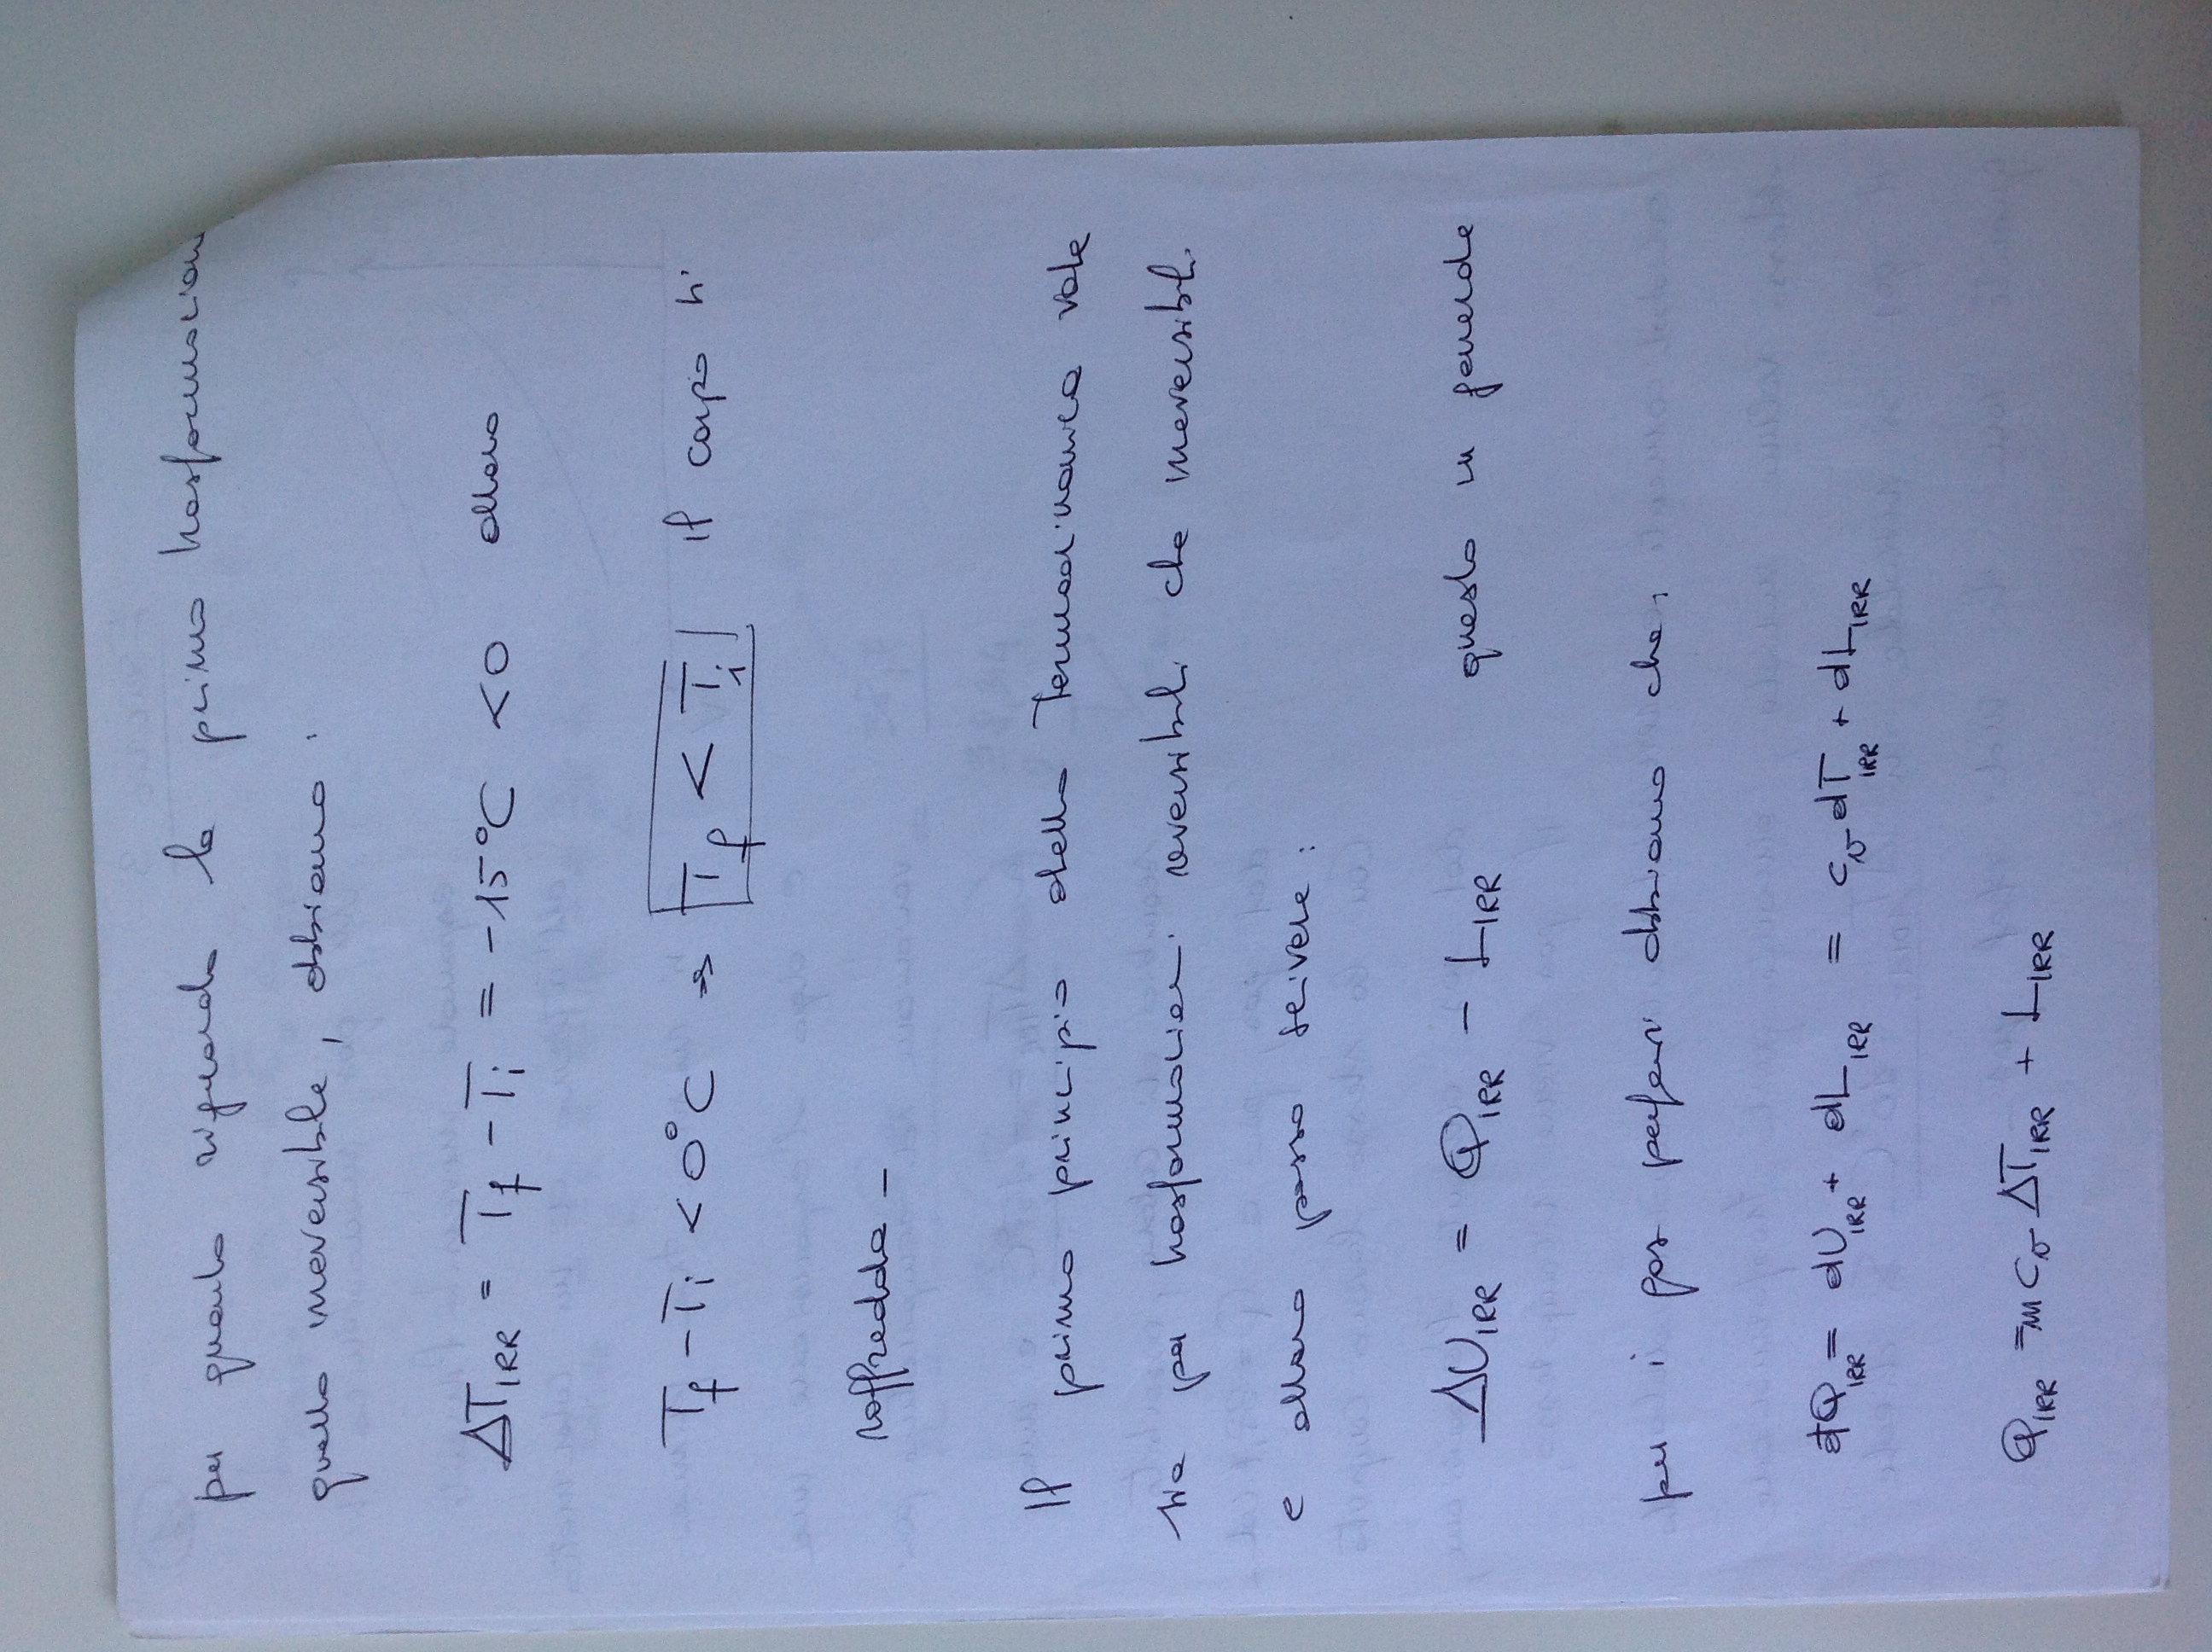 per quanto riguarda la prima trasformazion
quella irreversibile, abbiamo:
ΔT_IRR = T_f - T_i = -15°C < 0 allora
T_f - T_i < 0°C ⇒ T_f < T_i Il corpo si
raffredda -
Il primo principio della Termodinamica vale
sia per trasformazioni reversibili che irreversibili
e allora posso scrivere:
ΔU_IRR = Q_IRR - L_IRR questo in generale
per i gas perfetti abbiamo che:
đQ_IRR = dU_IRR + dL_IRR = c_v dT_IRR + dL_IRR
Q_IRR = m c_v ΔT_IRR + L_IRR